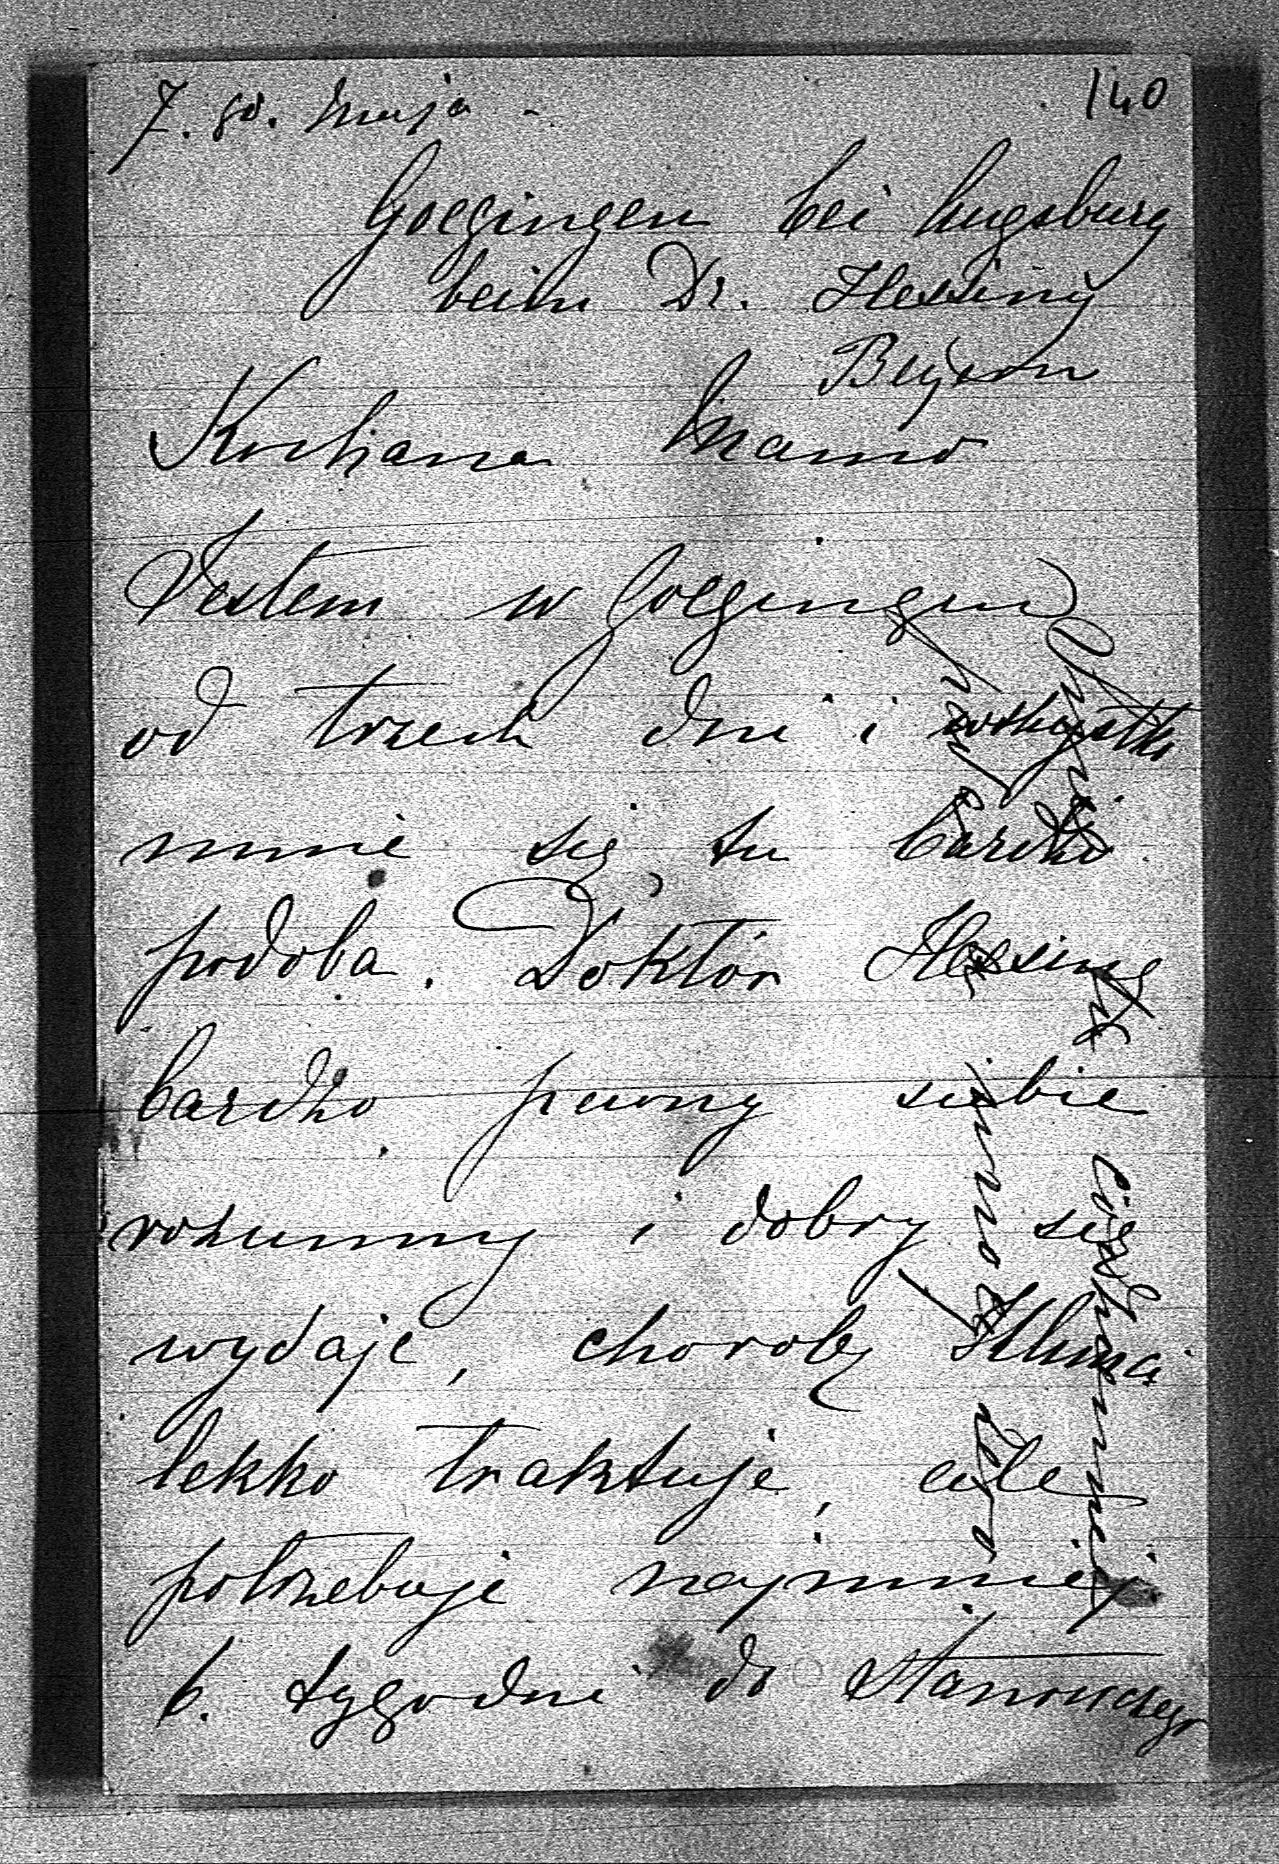 7. go. Maja
140
Goeggingen bei Augsburg
beim Dr. Hessing
Bayern
Kochana Mamo
Jestem w Goeggingen
od trzech dni i wszystko
mnie się tu bardzo
podoba. Doktór Hessing
bardzo pewny siebie
rozumny i dobry się
wydaje, chorobę
lekko traktuje, ale
potrzebuje najmniej
6. tygodni do stanowczego